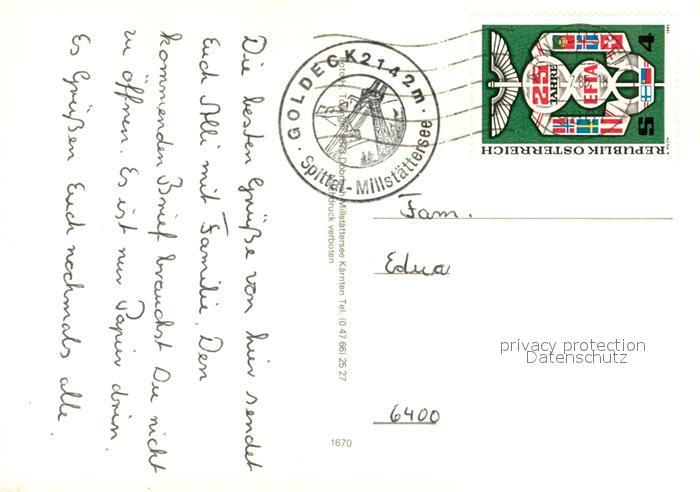 Die besten Grüße von hier sendet
Euch Alli mit Familie. Den
kommenden Brief brauchst Du nicht
zu öffnen. Es ist nur Papier drin.
Es Grüßen Euch nochmals alle.
GOLDECK 2142 m.
Spittal-Millstättersee
25 JAHRE EFTA
S 4
REPUBLIK ÖSTERREICH
Millstättersee Kärnten Tel. (0 47 66) 25 27
verboten
1670
Fam.
Edua
6400
privacy protection
Datenschutz